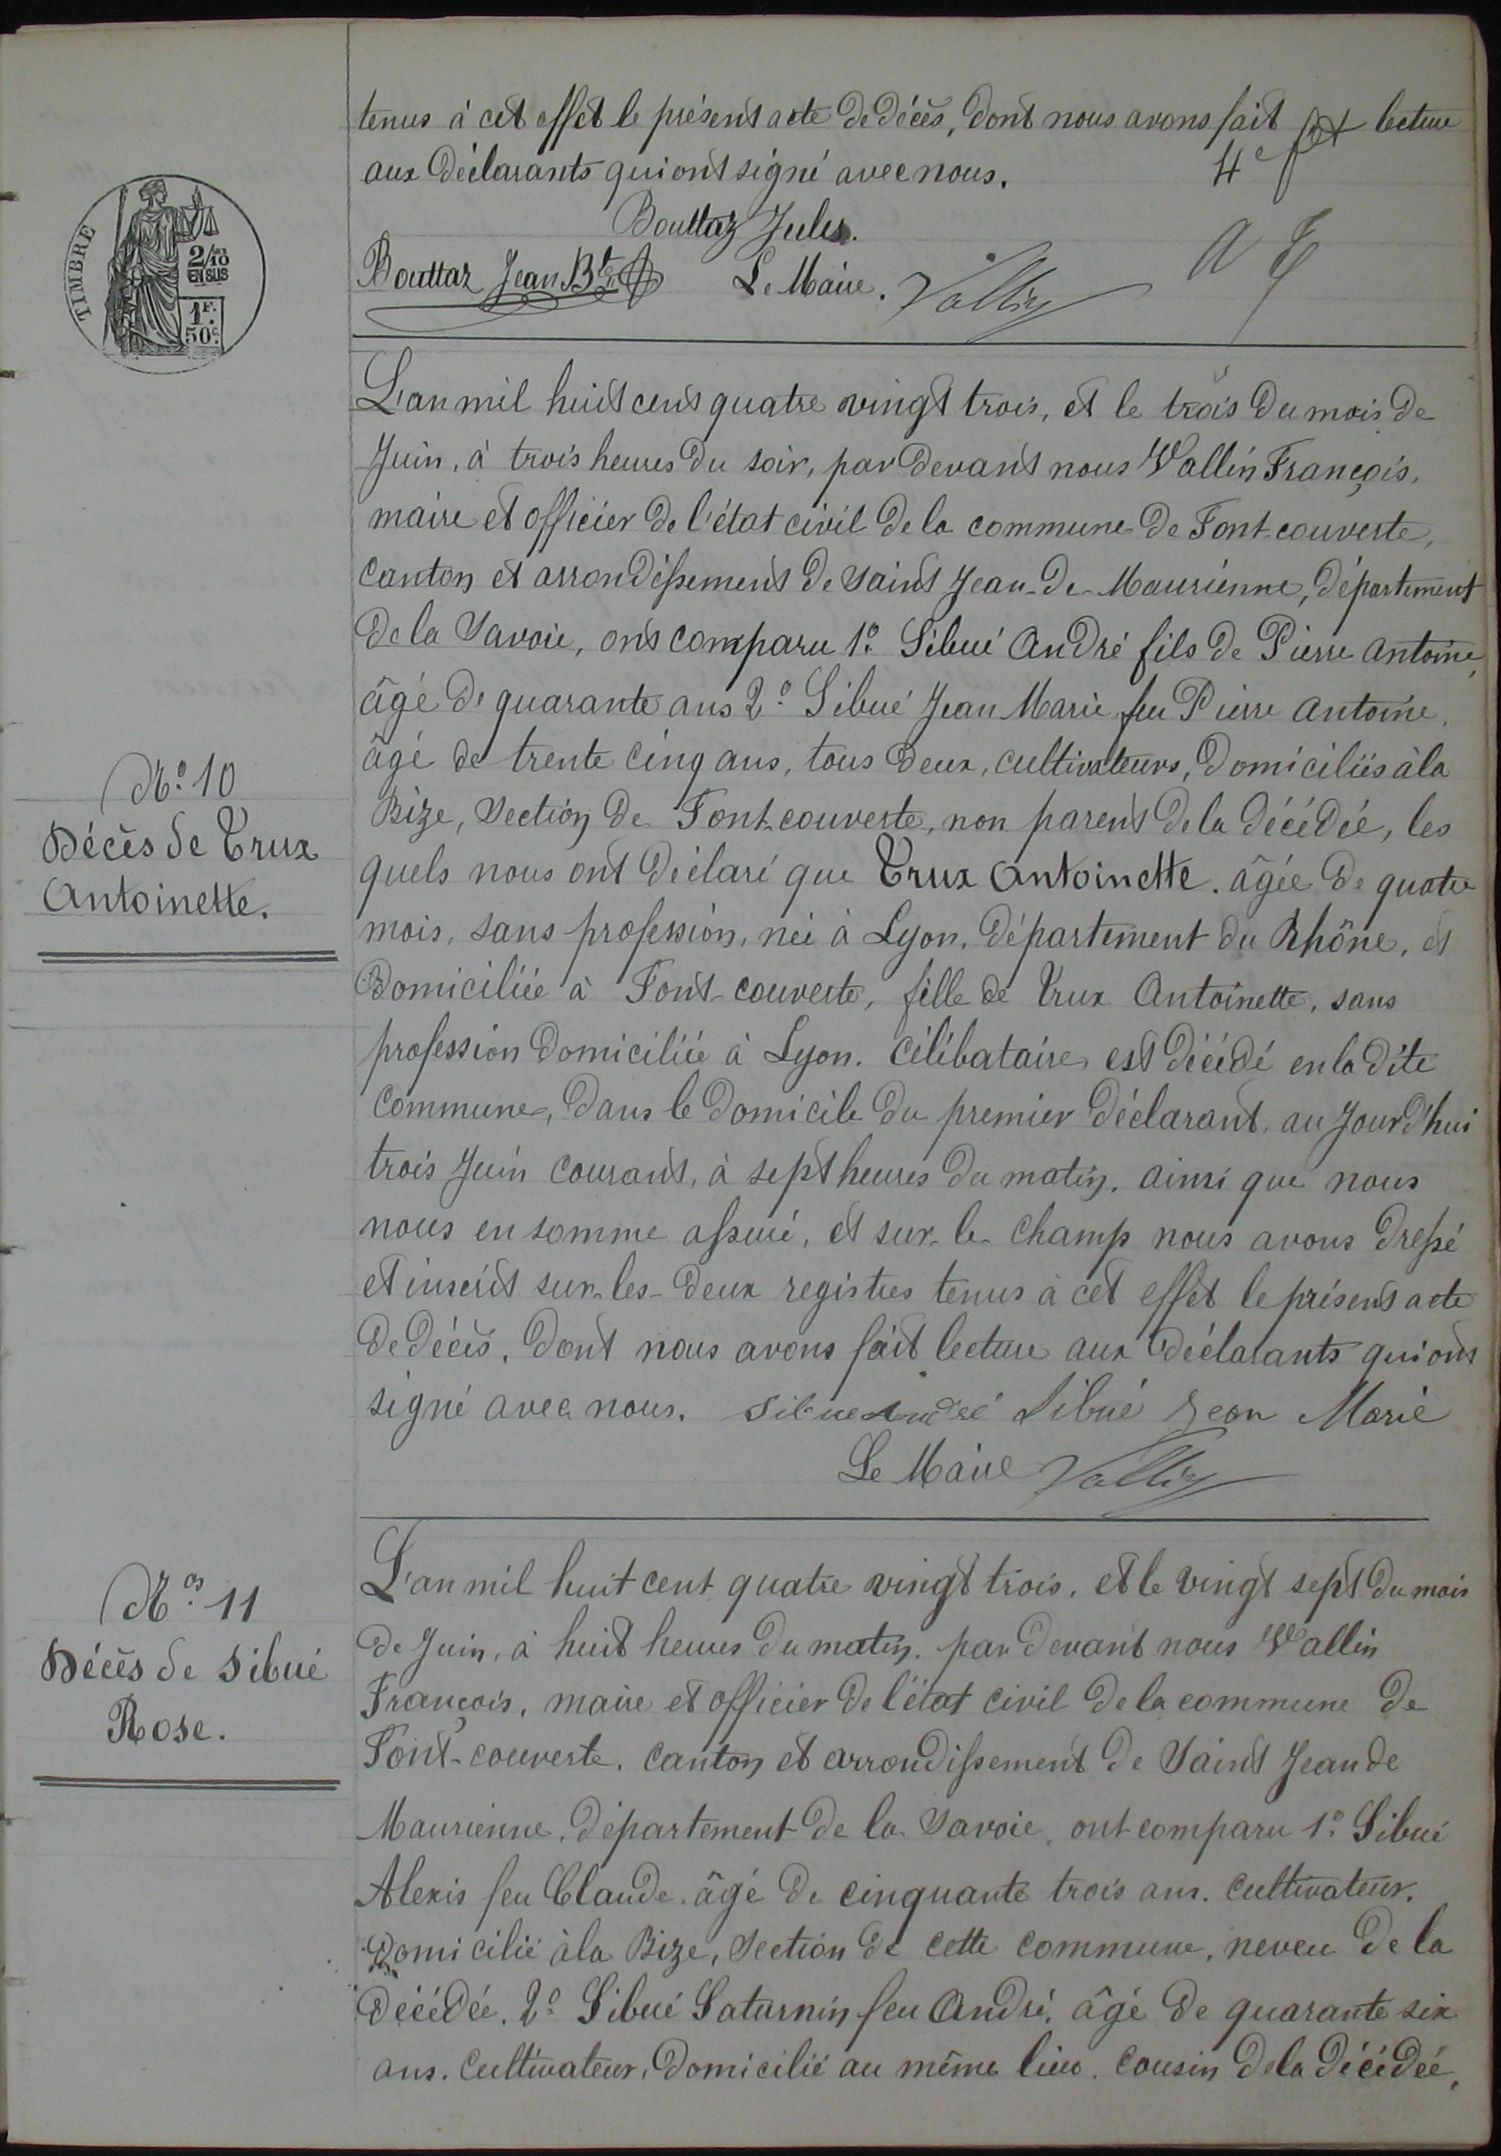 tenus à cet effet le présent acte de décès, dont nous avons fait lecture
aux déclarants qui ont signé avec nous. 4e
Bouttaz Jules.
Bouttaz Jean Bte Le Maire. Vallin
TIMBRE
2/10
EN SUS
1F.
50c
L'an mil huit cent quatre vingt trois, et le trois du mois de
Juin, à trois heures du soir, par devant nous Vallin François,
maire et officier de l'état civil de la commune de Font-couverte,
canton et arrondissement de Saint Jean-de-Maurienne, département
de la Savoie, ont comparu 1o. Sibué André fils de Pierre Antoine,
âgé de quarante ans 2o. Sibué Jean Marie feu Pierre Antoine,
âgé de trente cinq ans, tous deux, cultivateurs, domiciliés à la
Bize, section de Font-couverte, non parent de la décédée, les
quels nous ont déclaré que Trux Antoinette. âgée de quatre
mois, sans profession, née à Lyon, département du Rhône, et
domiciliée à Font-couverte, fille de Trux Antoinette, sans
profession domiciliée à Lyon. célibataire, est décédé en la dite
commune, dans le domicile du premier déclarant, au jourd'hui
trois Juin courant, à sept heures du matin. ainsi que nous
nous en somme assuré, et sur-le-champ nous avons dressé
et inscrit sur-les-deux registres tenus à cet effet le présent acte
de décès, dont nous avons fait lecture aux déclarants qui ont
signé avec nous. Sibué André Sibué Jean Marie
Le Maire Vallin
No. 10
Décès de Trux
Antoinette.
L'an mil huit cent quatre vingt trois. et le vingt sept du mois
de Juin, à huit heures du matin. par devant nous Vallin
François, maire et officier de l'état civil de la commune de
Font-couverte. canton et arrondissement de Saint Jean de
Maurienne, département de la Savoie, ont comparu 1o. Sibué
Alexis feu Claude. âgé de cinquante trois ans. cultivateur.
domicilié à la Bize, section de cette commune, neveu de la
décédée. 2o. Sibué Saturnin feu André. âgé de quarante six
ans. cultivateur, domicilié au même lieu. cousin de la décédée,
Nos. 11
Décès de Sibué
Rose.